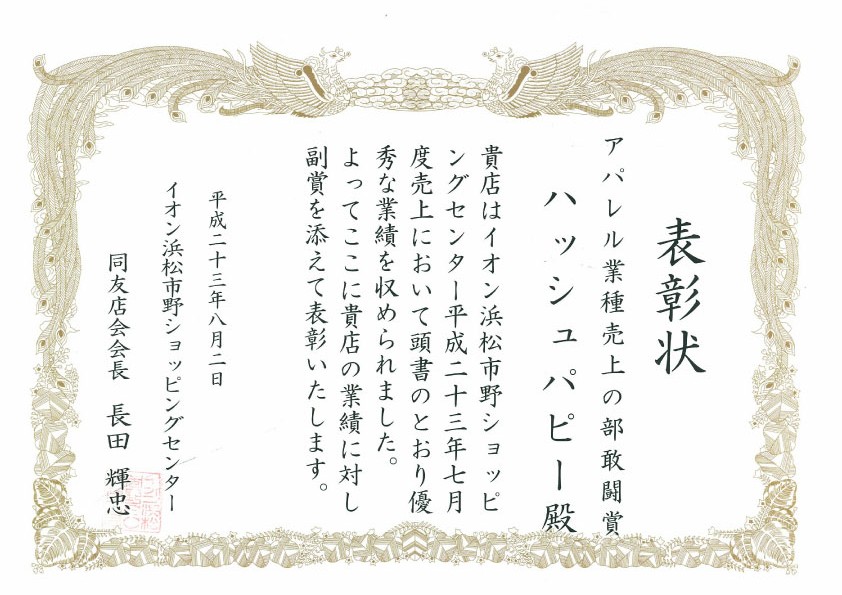 表彰状
アパレル業種売上の部敢闘賞
ハッシュパピー殿
貴店はイオン浜松市野ショッピ
ングセンター平成二十三年七月
度売上において頭書のとおり優
秀な業績を収められました。
よってここに貴店の業績に対し
副賞を添えて表彰いたします。
平成二十三年八月二日
イオン浜松市野ショッピングセンター
同友店会会長 長田輝忠